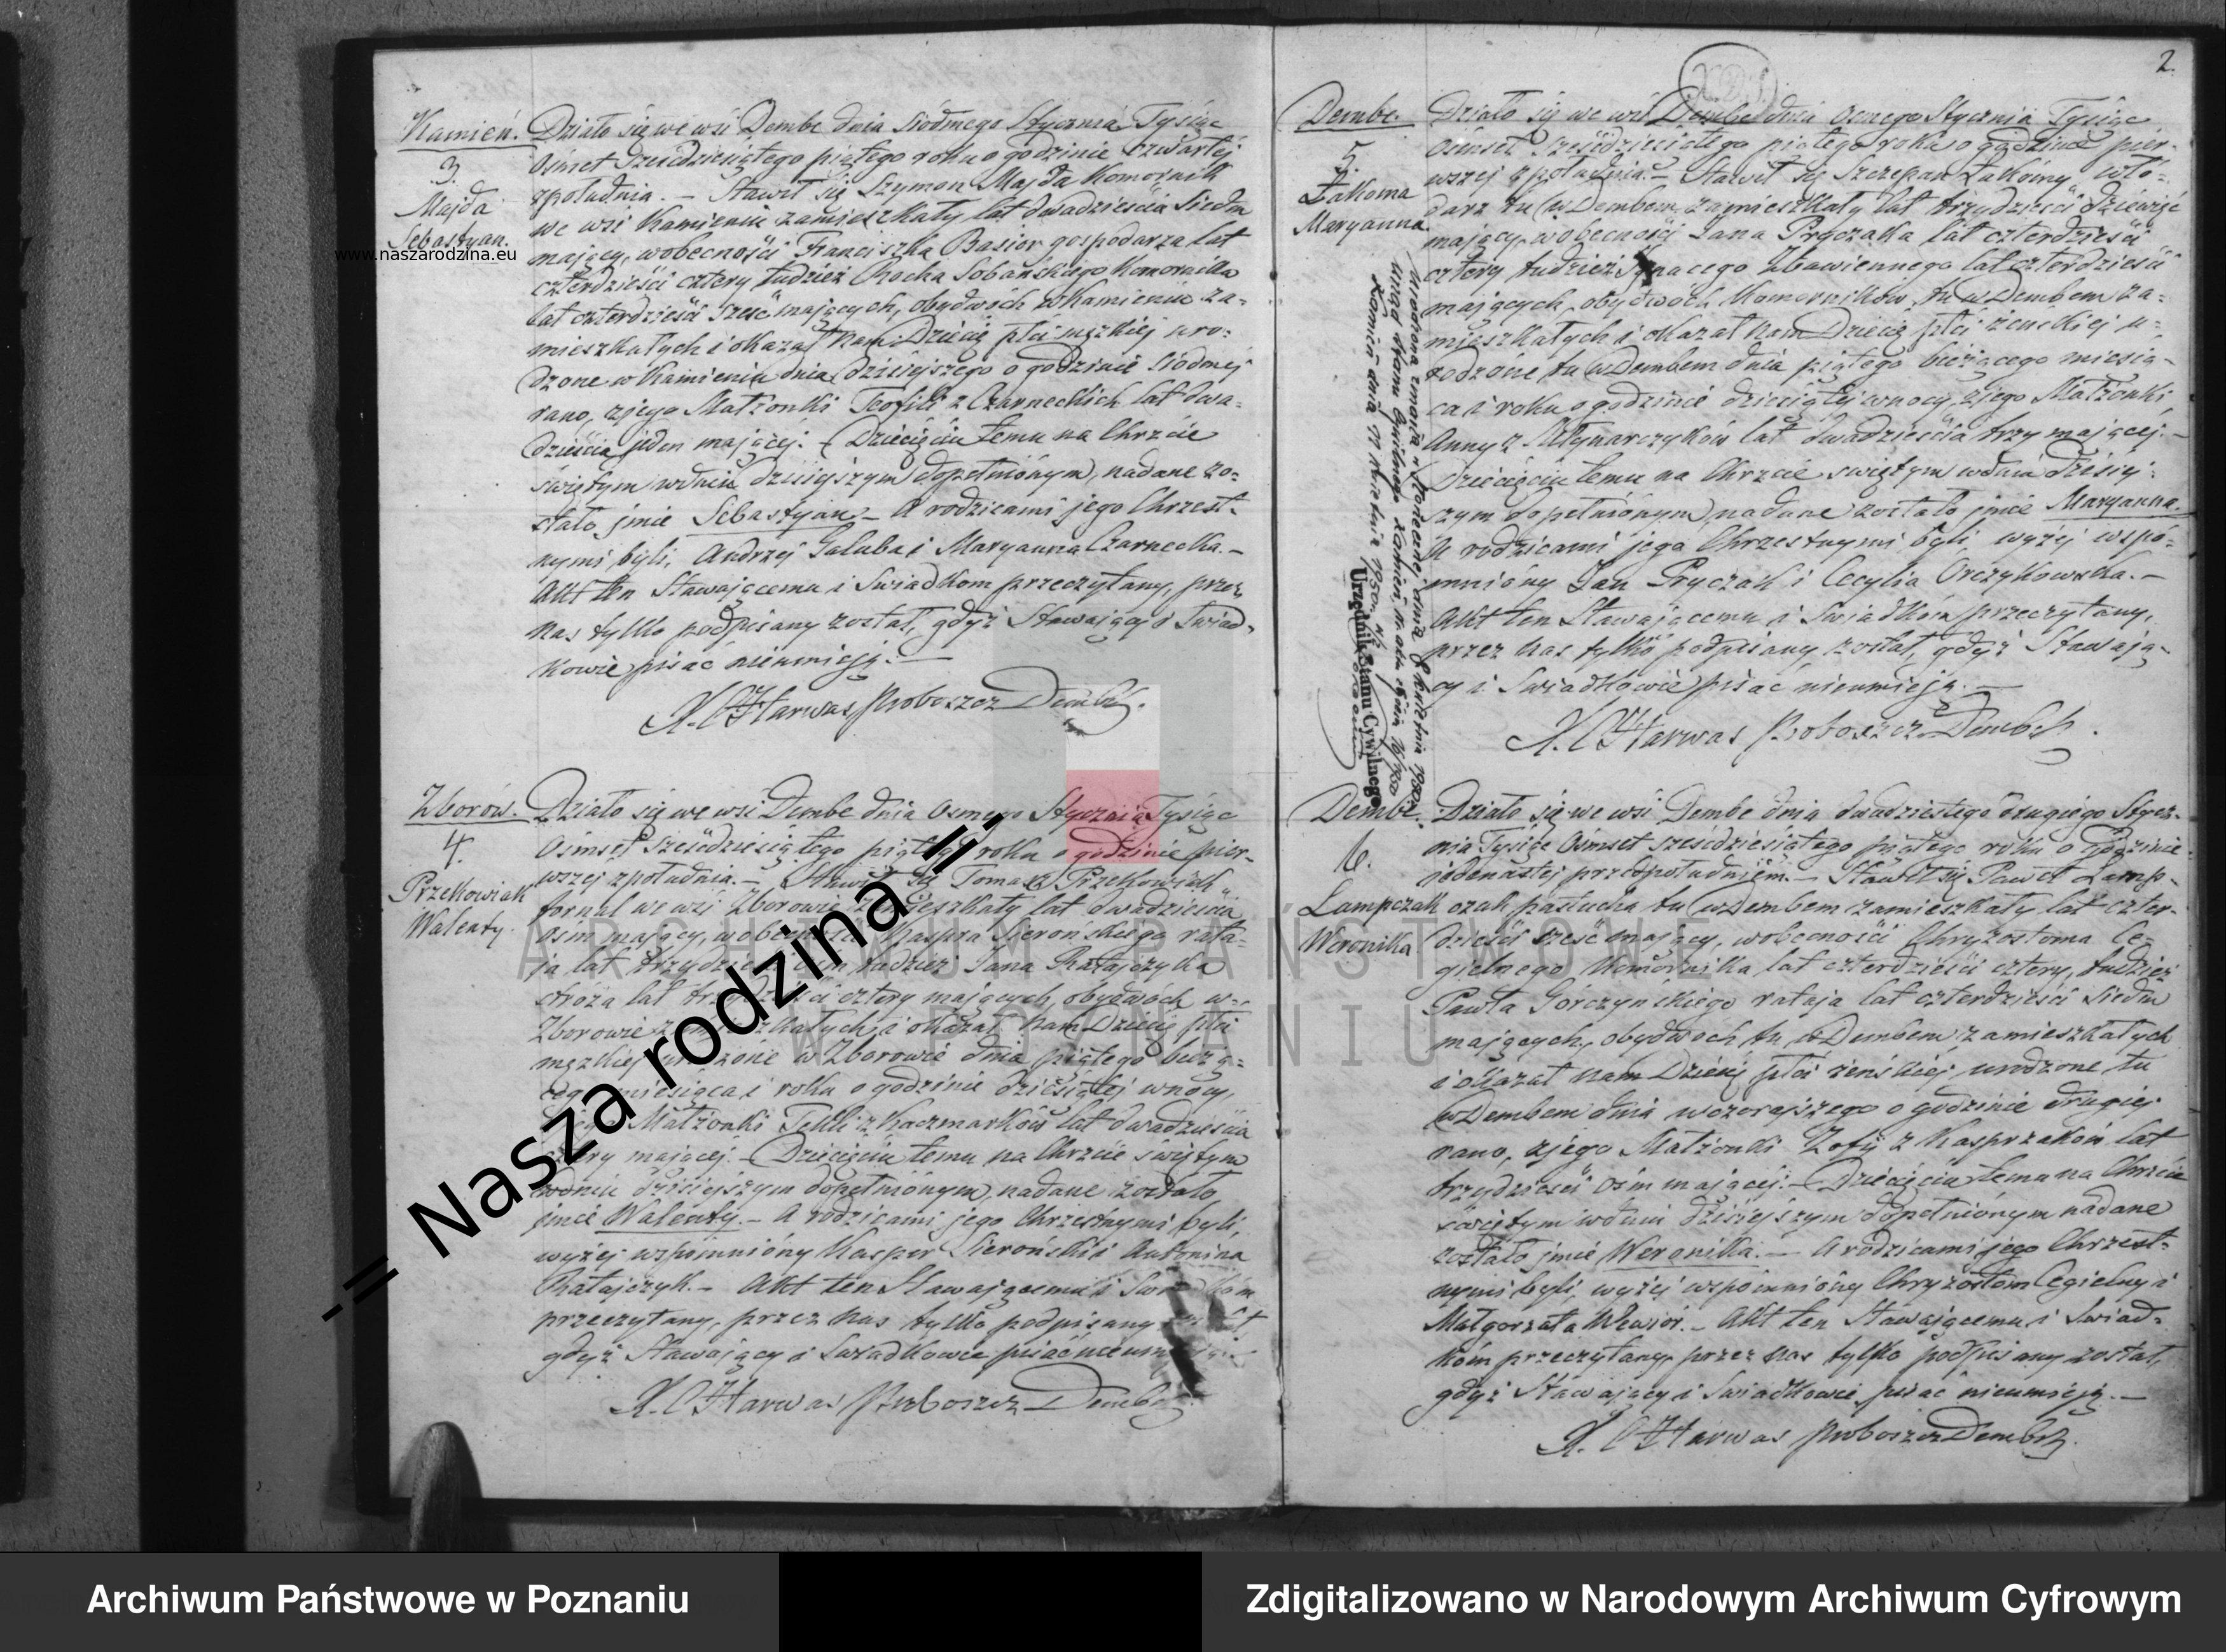 Kamień.
3.
Majda
Sebastyan.
www.naszarodzina.eu
Działo się we wsi Dembe dnia siódmego Stycznia Tysiąc
Ośmset sześćdziesiątego piątego roku o godzinie czwartej
zpołudnia. — Stawił się Szymon Majda Komornik
we wsi Kamieniu zamieszkały lat dwadzieścia siedm
mający, wobecności Franciszka Basior gospodarza lat
czterdzieści cztery tudzież Rocha Sobańskiego Komornika
lat czterdzieści sześć mających, obydwóch w Kamieniu za-
mieszkałych i okazał nam Dziecię płci męzkiej uro-
dzone w Kamieniu dnia dzisiejszego o godzinie siódmej
rano, zjego Małżonki Teofili z Czarneckich lat dwa-
dzieścia jeden mającej. — Dziecięciu temu na Chrzcie
świętym wdniu dzisiejszym dopełnionym, nadane zo-
stało imie Sebastyan. — A rodzicami jego Chrzest-
nymi byli, Andrzej Galuba i Maryanna Czarnecka. —
Akt ten Stawającemu i Świadkom przeczytany, przez
nas tylko podpisany został, gdyż Stawający i Świad-
kowie pisać nieumieją. —
X. Harwas Proboszcz Dembsk.
Zborów.
4.
Przekowiak
Walenty.
Działo się we wsi Dembe dnia Osmego Stycznia Tysiąc
Ośmset sześćdziesiątego piątego roku o godzinie pier-
wszej zpołudnia. — Stawił się Tomasz Przekowiak
fornal we wsi Zborowie zamieszkały lat dwadzieścia
osm mający, wobecności Kaspra Sierońskiego rata-
ja lat trzydzieści ośm tudzież Jana Ratajczyka
stróża lat trzydzieści cztery mających, obydwóch w-
Zborowie zamieszkałych i okazał nam Dziecię płci
męzkiej urodzone w Zborowie dnia piątego bieżą-
cego miesiąca i roku o godzinie dziesiątej wnocy,
zjego Małżonki Tekli z Kaczmarków lat dwadzieścia
cztery mającej. — Dziecięciu temu na Chrzcie świętym
wdniu dzisiejszym dopełnionym, nadane zostało
imie Walenty. — A rodzicami jego Chrzestnymi byli,
wyżej wspomniony Kasper Sieroński i Antonina
Ratajczyk. — Akt ten Stawającemu i Świadkom
przeczytany, przez nas tylko podpisany został
gdyż Stawający i Świadkowie pisać nieumieją.
X. Harwas Proboszcz Dembsk.
2.
Dembe.
5.
Żakowna
Maryanna.
Działo się we wsi Dembe dnia Osmego Stycznia Tysiąc
Ośmset sześćdziesiątego piątego roku o godzinie pier-
wszej zpołudnia. — Stawił się Szczepan Żakowny wło-
darz tu w Dembem zamieszkały lat trzydzieści dziewięć
mający, wobecności Jana Pryczaka lat czterdzieści
cztery tudzież Ignacego Zbawiennego lat czterdzieści
mających, obydwóch Komorników tu w Dembem za-
mieszkałych i okazał nam Dziecię płci żeńskiej u-
rodzone tu w Dembem dnia piątego bieżącego miesią-
ca i roku o godzinie dziesiątej wnocy, zjego Małżonki
Anny z Młynarczyków lat dwadzieścia trzy mającej. —
Dziecięciu temu na Chrzcie świętym wdniu dzisiej-
szym dopełnionym, nadane zostało imie Maryanna.
A rodzicami jego Chrzestnymi byli wyżej wspo-
mniony Jan Pryczak i Cecylia Orczykowska. —
Akt ten Stawającemu i Świadkom przeczytany,
przez nas tylko podpisany został, gdyż Stawają-
cy i Świadkowie pisać nieumieją. —
X. Harwas Proboszcz Dembsk.
Urzędnik Stanu Cywilnego
Dembe.
6.
Lampczak
Weronika
Działo się we wsi Dembe dnia dwudziestego drugiego Stycz-
nia Tysiąc Ośmset sześćdziesiątego piątego roku o godzinie
jedenastej przedpołudniem. — Stawił się Paweł Lamp-
czak, pastucha tu w Dembem zamieszkały lat czter-
dzieści sześć mający, wobecności Chryzostoma Ce-
gielnego Komornika lat czterdzieści cztery, tudzież
Pawła Górczyńskiego rataja lat czterdzieści siedm
mających, obydwóch tu w Dembem zamieszkałych
i okazał nam Dziecię płci żeńskiej urodzone tu
w Dembem dnia wczorajszego o godzinie drugiej
rano, zjego Małżonki Zofij z Kasprzaków lat
trzydzieści ośm mającej. — Dziecięciu temu na Chrzcie
świętym wdniu dzisiejszym dopełnionym nadane
zostało imie Weronika. — A rodzicami jego Chrzest-
nymi byli, wyżej wspomniony Chryzostom Cegielny i
Małgorzata Wewiór. — Akt ten Stawającemu i Świad-
kom przeczytany, przez nas tylko podpisany został,
gdyż Stawający i Świadkowie pisać nieumieją. —
X. Harwas Proboszcz Dembsk.
.:= Nasza rodzina =:.
ARCHIWUM PAŃSTWOWE
W POZNANIU
Archiwum Państwowe w Poznaniu
Zdigitalizowano w Narodowym Archiwum Cyfrowym